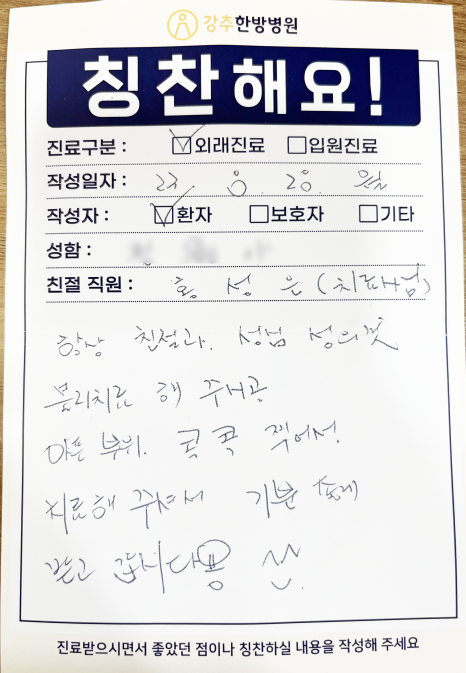 강추한방병원
칭찬해요!
진료구분 : ☑외래진료 □입원진료
작성일자 : 23. 8. 28. 월
작성자 : ☑환자 □보호자 □기타
성함 :
친절 직원 : 홍성은 (치료사님)
항상 친절과. 성심 성의껏
물리치료 해 주시공
아픈 부위. 콕 콕 찍어서.
치료해 주셔서 기분 좋게
받고 갑니다용
진료받으시면서 좋았던 점이나 칭찬하실 내용을 작성해 주세요